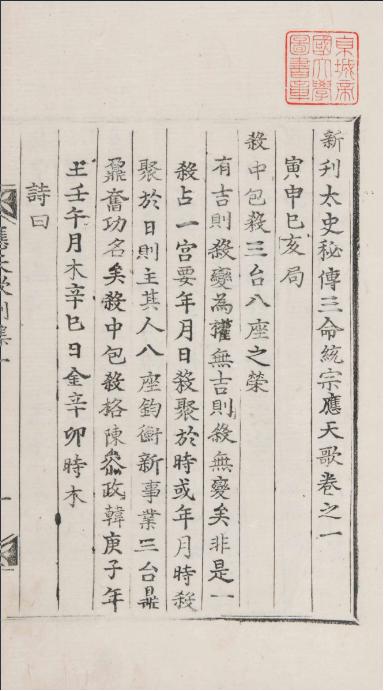 京城帝
國大學
圖書章
新刊太史秘傳三命統宗應天歌卷之一
寅申巳亥局
殺中包殺三台八座之榮
有吉則殺變為權無吉則殺無變矣非是一
殺占一宮要年月日殺聚於時或年月時殺
聚於日則主其人八座鈞衡新事業三台鼎
鼐奮功名矣殺中包殺格陳叅政韓庚子年
土壬午月木辛巳日金辛卯時木
詩曰